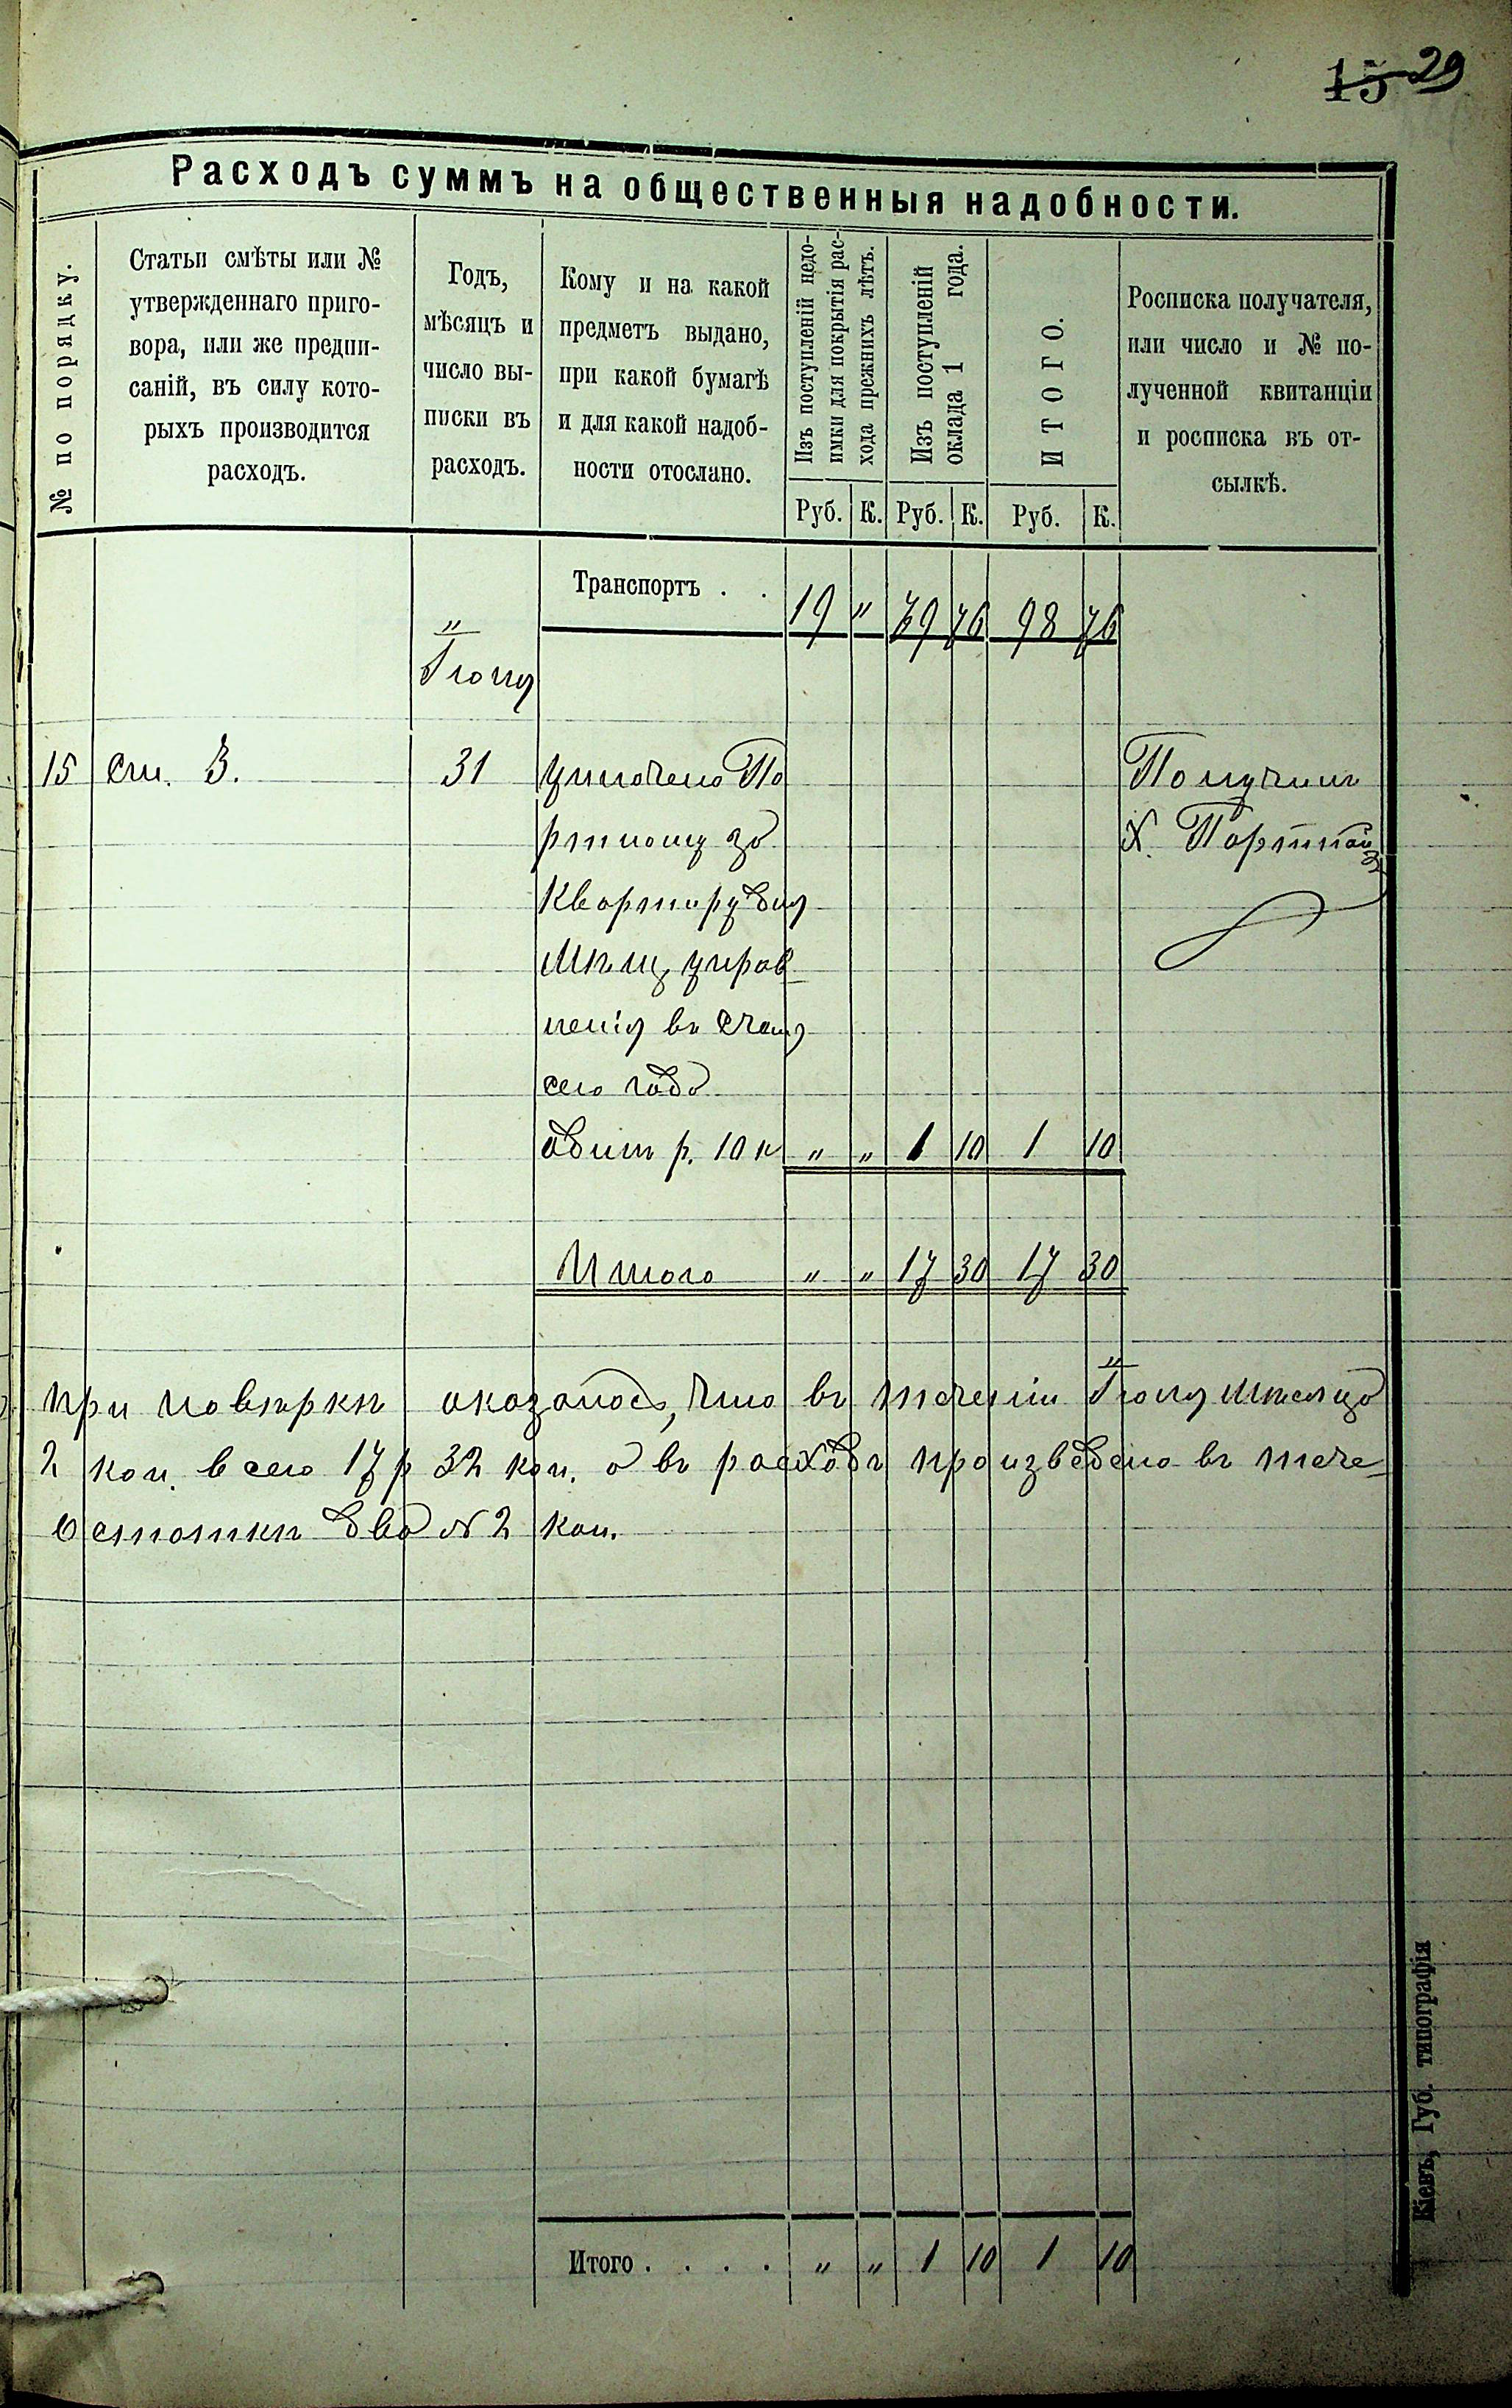 15 29
Расходъ суммъ на общественныя надобности.
№ по порядку.
Статьи смѣты или №
утвержденнаго приго-
вора, или же предпи-
саній, въ силу кото-
рыхъ производится
расходъ.
Годъ,
мѣсяцъ и
число вы-
писки въ
расходъ.
Кому и на какой
предметъ выдано,
при какой бумагѣ
и для какой надоб-
ности отослано.
Изъ поступленій недо-
имки для покрытія рас-
хода прежнихъ лѣтъ.
Изъ поступленій
оклада 1 года.
ИТОГО.
Росписка получателя,
или число и № по-
лученной квитанціи
и росписка въ от-
сылкѣ.
Руб. К. Руб. К. Руб. К.
Транспортъ . . 19 " 79 76 98 76
"
Іюля
15 Ст. 3. 31 уплочено По Получилъ
ртному за Х. Портной
квартиру для
Мѣщ. управ-
ленія въ счетъ
сего года
одинъ р. 10 к " " 1 10 1 10
Итого " " 17 30 17 30
При повѣркѣ оказалось, что въ теченіи Іюля мѣсяца
2 коп. всего 17 р 32 коп. а въ расходъ произведено въ тече-
Остаткѣ два № 2 коп.
Итого . . . . " " 1 10 1 10
Кіевъ, Губ. типографія